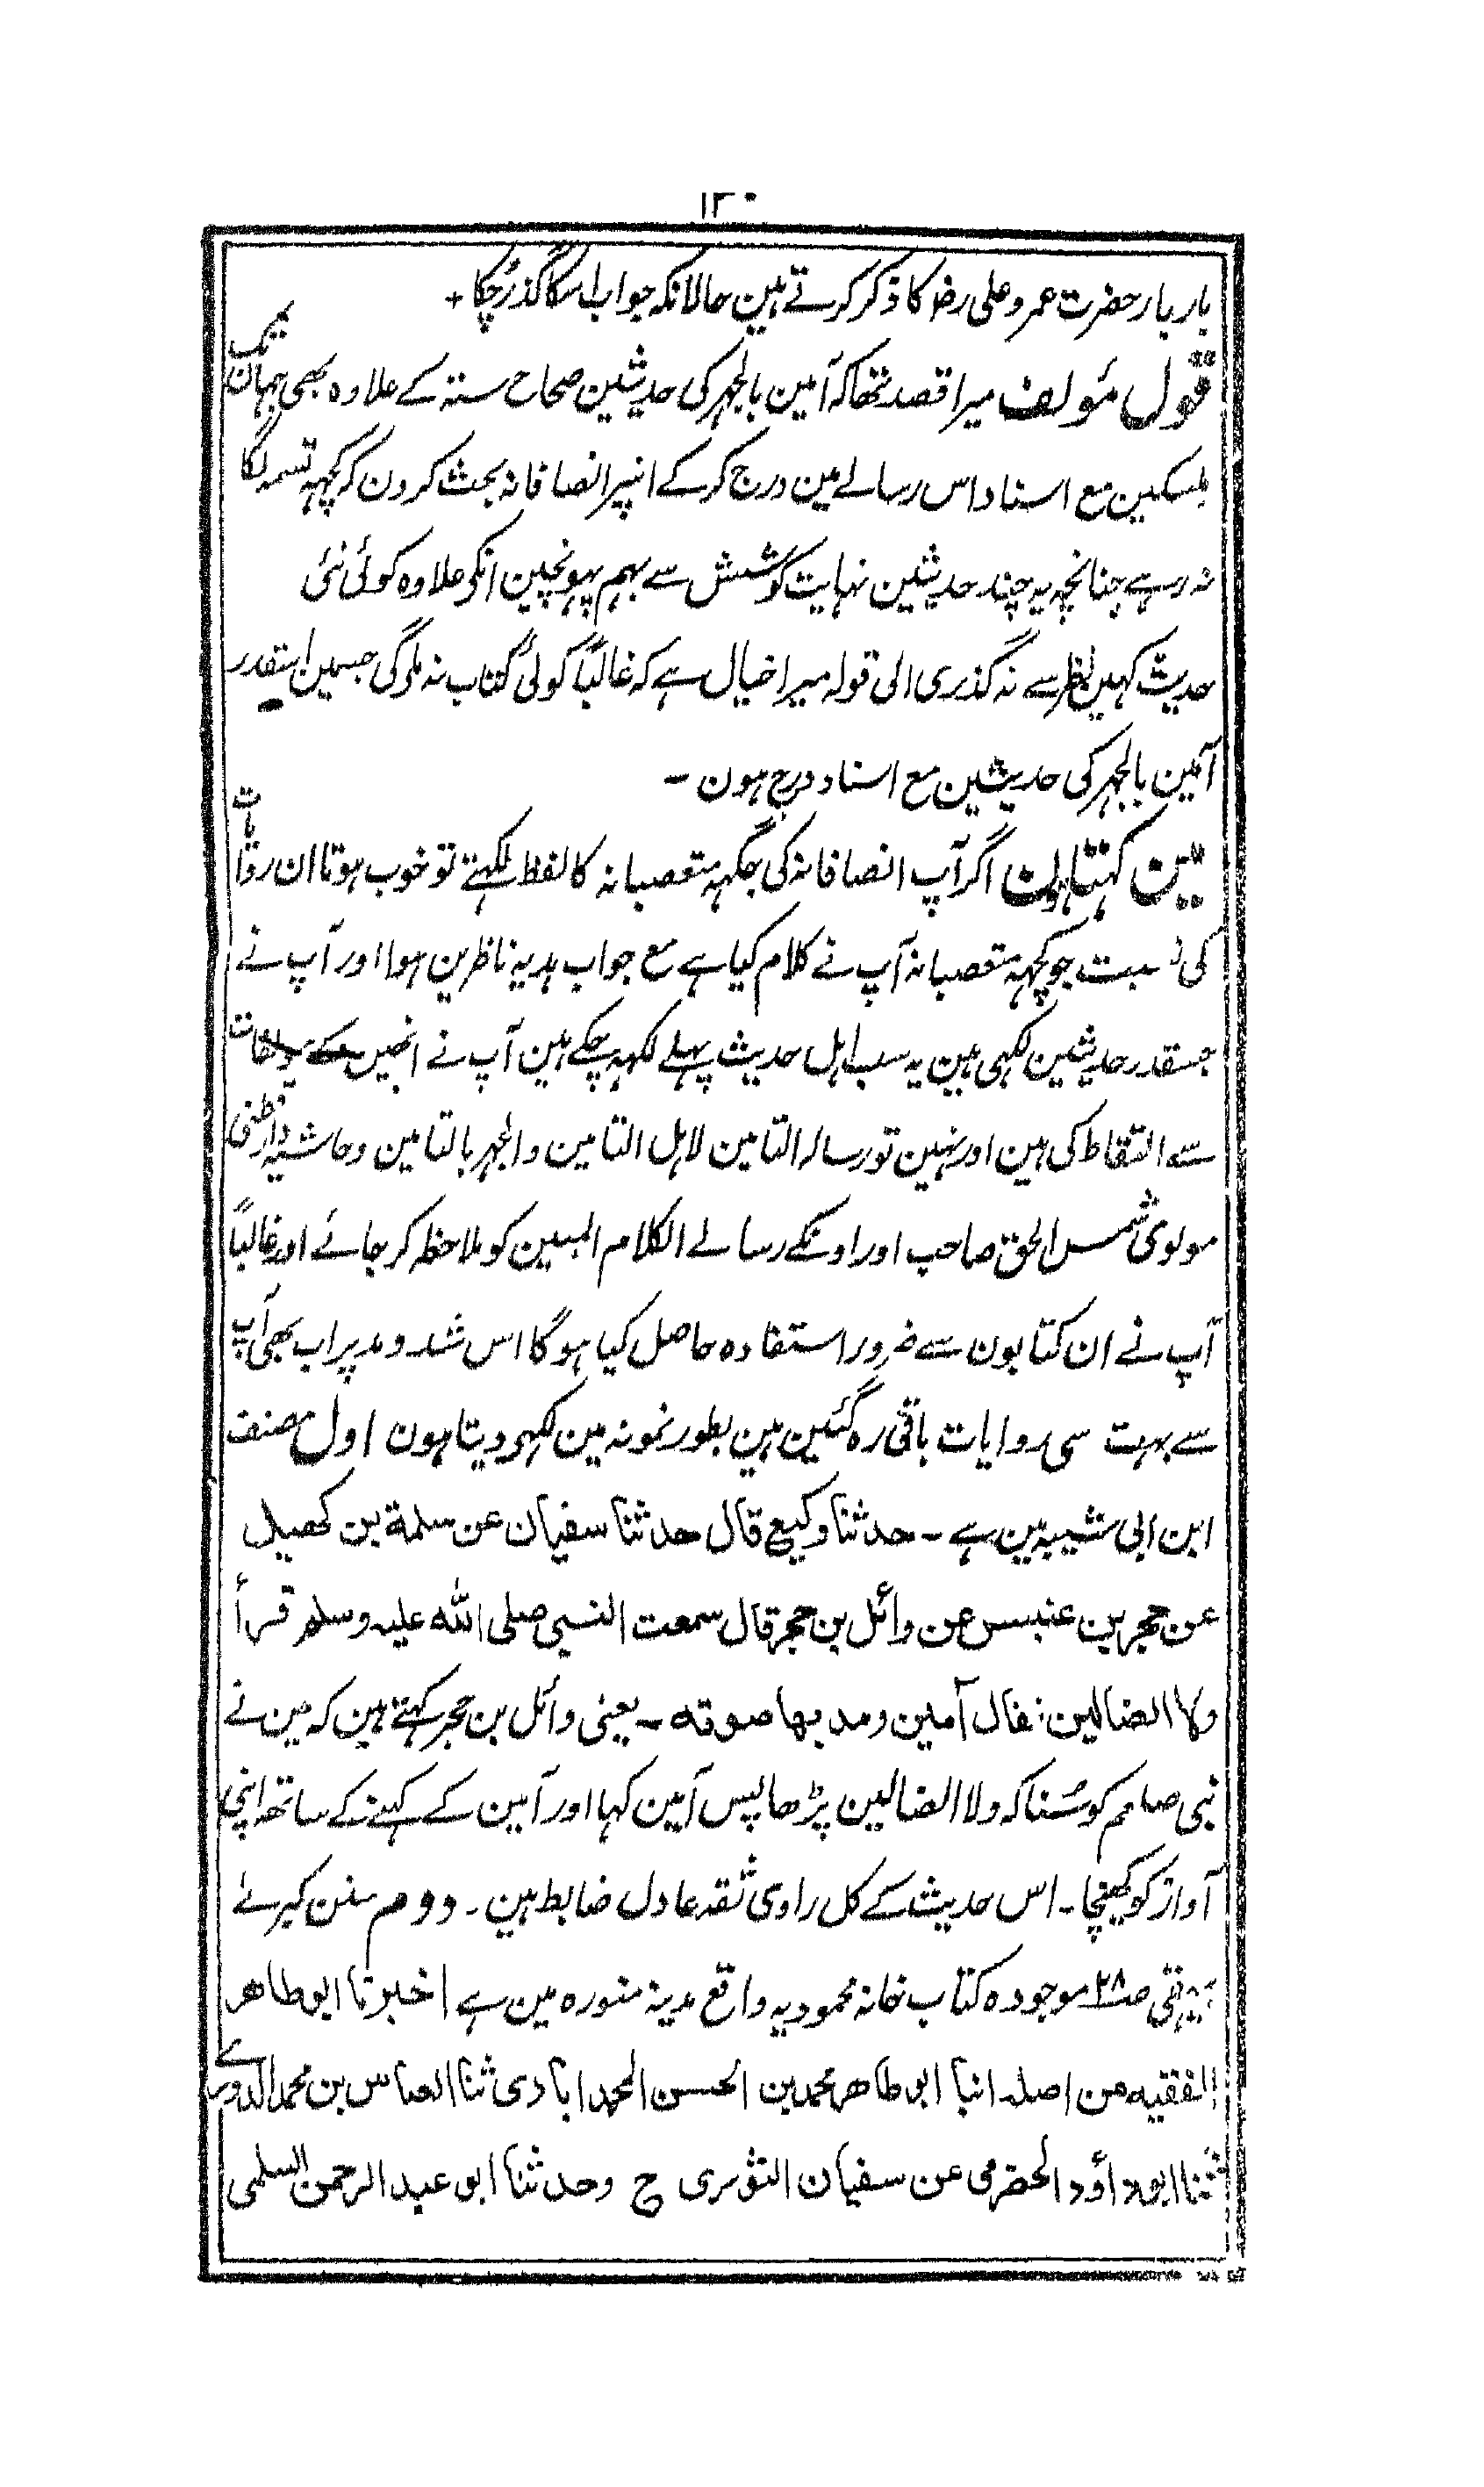 ۱۳۰
بار بار حضرت عمر و علی رضہ کا ذکر کرتے ہین حالانکہ جواب اسکا گذر چکا +
قول مئولف میرا قصد تھا کہ آمین بالجہر کی حدیثین صحاح ستہ کے علاوہ بھی جہان تک
ملسکین مع اسناد اس رسالے مین درج کر کے انپر انصافانہ بحث کردون کہ کچہہ تسمہ لگا
نہ رہے چنانچہ یہ چند حدیثین نہایت کوشش سے بہم پہونچین انکے علاوہ کوئی نئی
حدیث کہین نظر سے نہ گذری الی قولہ میرا خیال ہے کہ غالباً کوئی کتاب نہ ملے گی جسمین استقدر
آمین بالجہر کی حدیثین مع اسناد درج ہون -
مین کہتا ہون اگر آپ انصافانہ کی جگہہ متعصبانہ کا لفظ لکہتے تو خوب ہوتا ان روایات
کی نسبت جو کچہہ متعصبانہ آپ نے کلام کیا ہے مع جواب ہدیہ ناظرین ہوا اور آپ نے
جسقدر حدیثین لکہی ہین یہ سب اہل حدیث پہلے لکہہ چکے ہین آپ نے انھین کے مولفات
سے التقاط کی ہین اور نہین تو رسالہ التامین لاہل التامین والجہر بالتامین وحاشیہ دارقطنی
مولوی شمس الحق صاحب اور اونکے رسالے الکلام المبین کو ملاحظہ کر جائے اور غالباً
آپ نے ان کتابون سے ضرور استفادہ حاصل کیا ہوگا اس شد و مد پر اب بھی آپ
سے بہت سی روایات باقی رہ گئین ہین بطور نمونہ مین لکہو دیتا ہون اول مصنف
ابن ابی شیبہ مین ہے - حدثنا وکیع قال حدثنا سفیان عن سلمة بن کھیل
عن حجر بن عنبس عن وائل بن حجر قال سمعت النبی صلی الله علیه وسلم قرأ
ولا الضالین فقال آمین ومد بھا صوته - یعنی وائل بن حجر کہتے ہین کہ مین نے
نبی صلعم کو سُنا کہ ولا الضالین پڑھا پس آمین کہا اور آمین کے کہنے کے ساتھہ اپنی
آواز کو کھینچا - اس حدیث کے کل راوی ثقہ عادل ضابط ہین - دوم سنن کبرے
بیہقی صـ۲۸ موجودہ کتاب خانہ محمودیہ واقع مدینہ منورہ مین ہے اخبرنا ابو طاھر
الفقیه من اصله انبا ابو طاھر محمد بن الحسن المحمد ابادی ثنا العباس بن محمد الدوری
ثنا ابو داؤد الحضرمی عن سفیان الثوری ح وحدثنا ابو عبد الرحمن السلمی